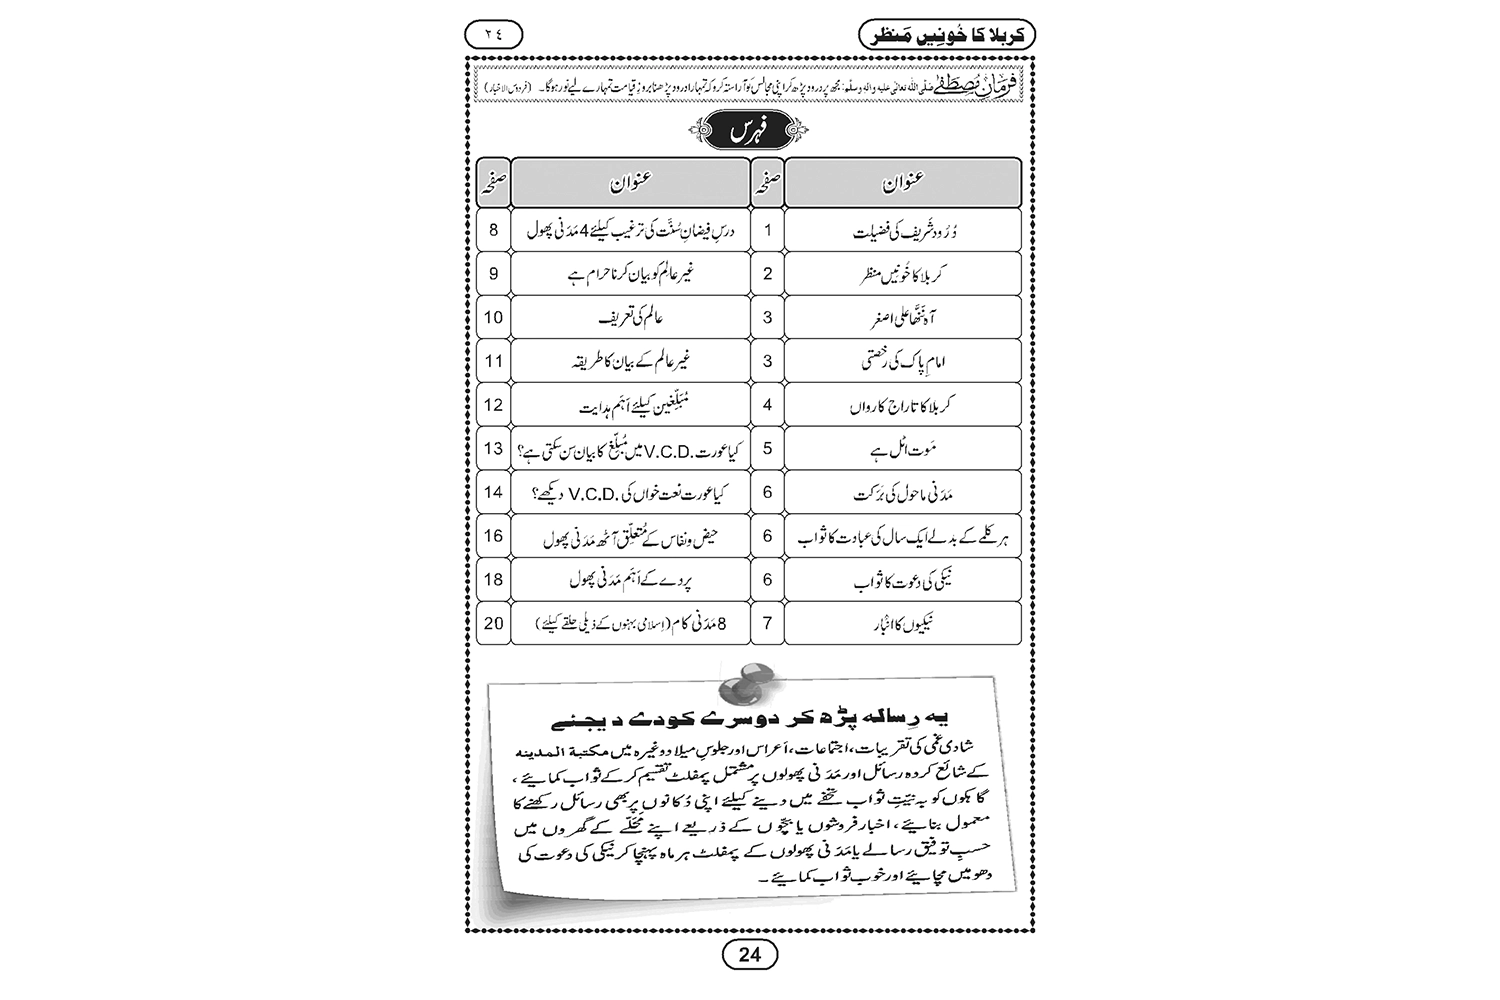 کربلا کا خُونِیں مَنظر
۲٤
فرمانِ مُصطَفٰے صَلَّی اللہ تعالیٰ علیہ والہٖ وسلَّم: مجھ پر درود پڑھ کر اپنی مجالس کو آراستہ کرو کہ تمہارا درود پڑھنا بروزِ قیامت تمہارے لیے نور ہوگا۔ (فردوس الاخبار)
فہرس
عنوان صفحہ عنوان صفحہ
دُرُود شریف کی فضیلت 1 درسِ فیضانِ سُنَّت کی ترغیب کیلئے 4 مَدَنی پھول 8
کربلا کا خُونِیں منظر 2 غیرِ عالِم کو بیان کرنا حرام ہے 9
آہ نَنّھا علی اصغر 3 عالم کی تعریف 10
امامِ پاک کی رخصتی 3 غیر عالم کے بیان کا طریقہ 11
کربلا کا تاراج کارواں 4 مُبَلِّغین کیلئے اَہَم ہدایت 12
مَوت اٹل ہے 5 کیا عورت V.C.D. میں مُبلِّغ کا بیان سن سکتی ہے؟ 13
مَدَنی ماحول کی بَرَکت 6 کیا عورت نعت خواں کی V.C.D. دیکھے؟ 14
ہر کلمے کے بدلے ایک سال کی عبادت کا ثواب 6 حیض و نفاس کے مُتعلِّق آٹھ مَدَنی پھول 16
نیکی کی دعوت کا ثواب 6 پردے کے اَہَم مَدَنی پھول 18
نیکیوں کا اَنْبار 7 8 مَدَنی کام (اِسلامی بہنوں کے ذیلی حلقے کیلئے) 20
یہ رِسالہ پڑھ کر دوسرے کو دے دیجئے
شادی غمی کی تقریبات، اجتماعات، اَعراس اور جلوسِ میلاد وغیرہ میں مکتبة المدینہ
کے شائع کردہ رسائل اور مَدَنی پھولوں پر مشتمل پمفلٹ تقسیم کرکے ثواب کمائیے،
گاہکوں کو بہ نیّتِ ثواب تحفے میں دینے کیلئے اپنی دُکانوں پر بھی رسائل رکھنے کا
معمول بنائیے، اخبار فروشوں یا بچّوں کے ذریعے اپنے مَحَلّے کے گھروں میں
حسبِ توفیق رسالے یا مَدَنی پھولوں کے پمفلٹ ہر ماہ پہنچا کر نیکی کی دعوت کی
دھومیں مچائیے اور خوب ثواب کمائیے۔
24